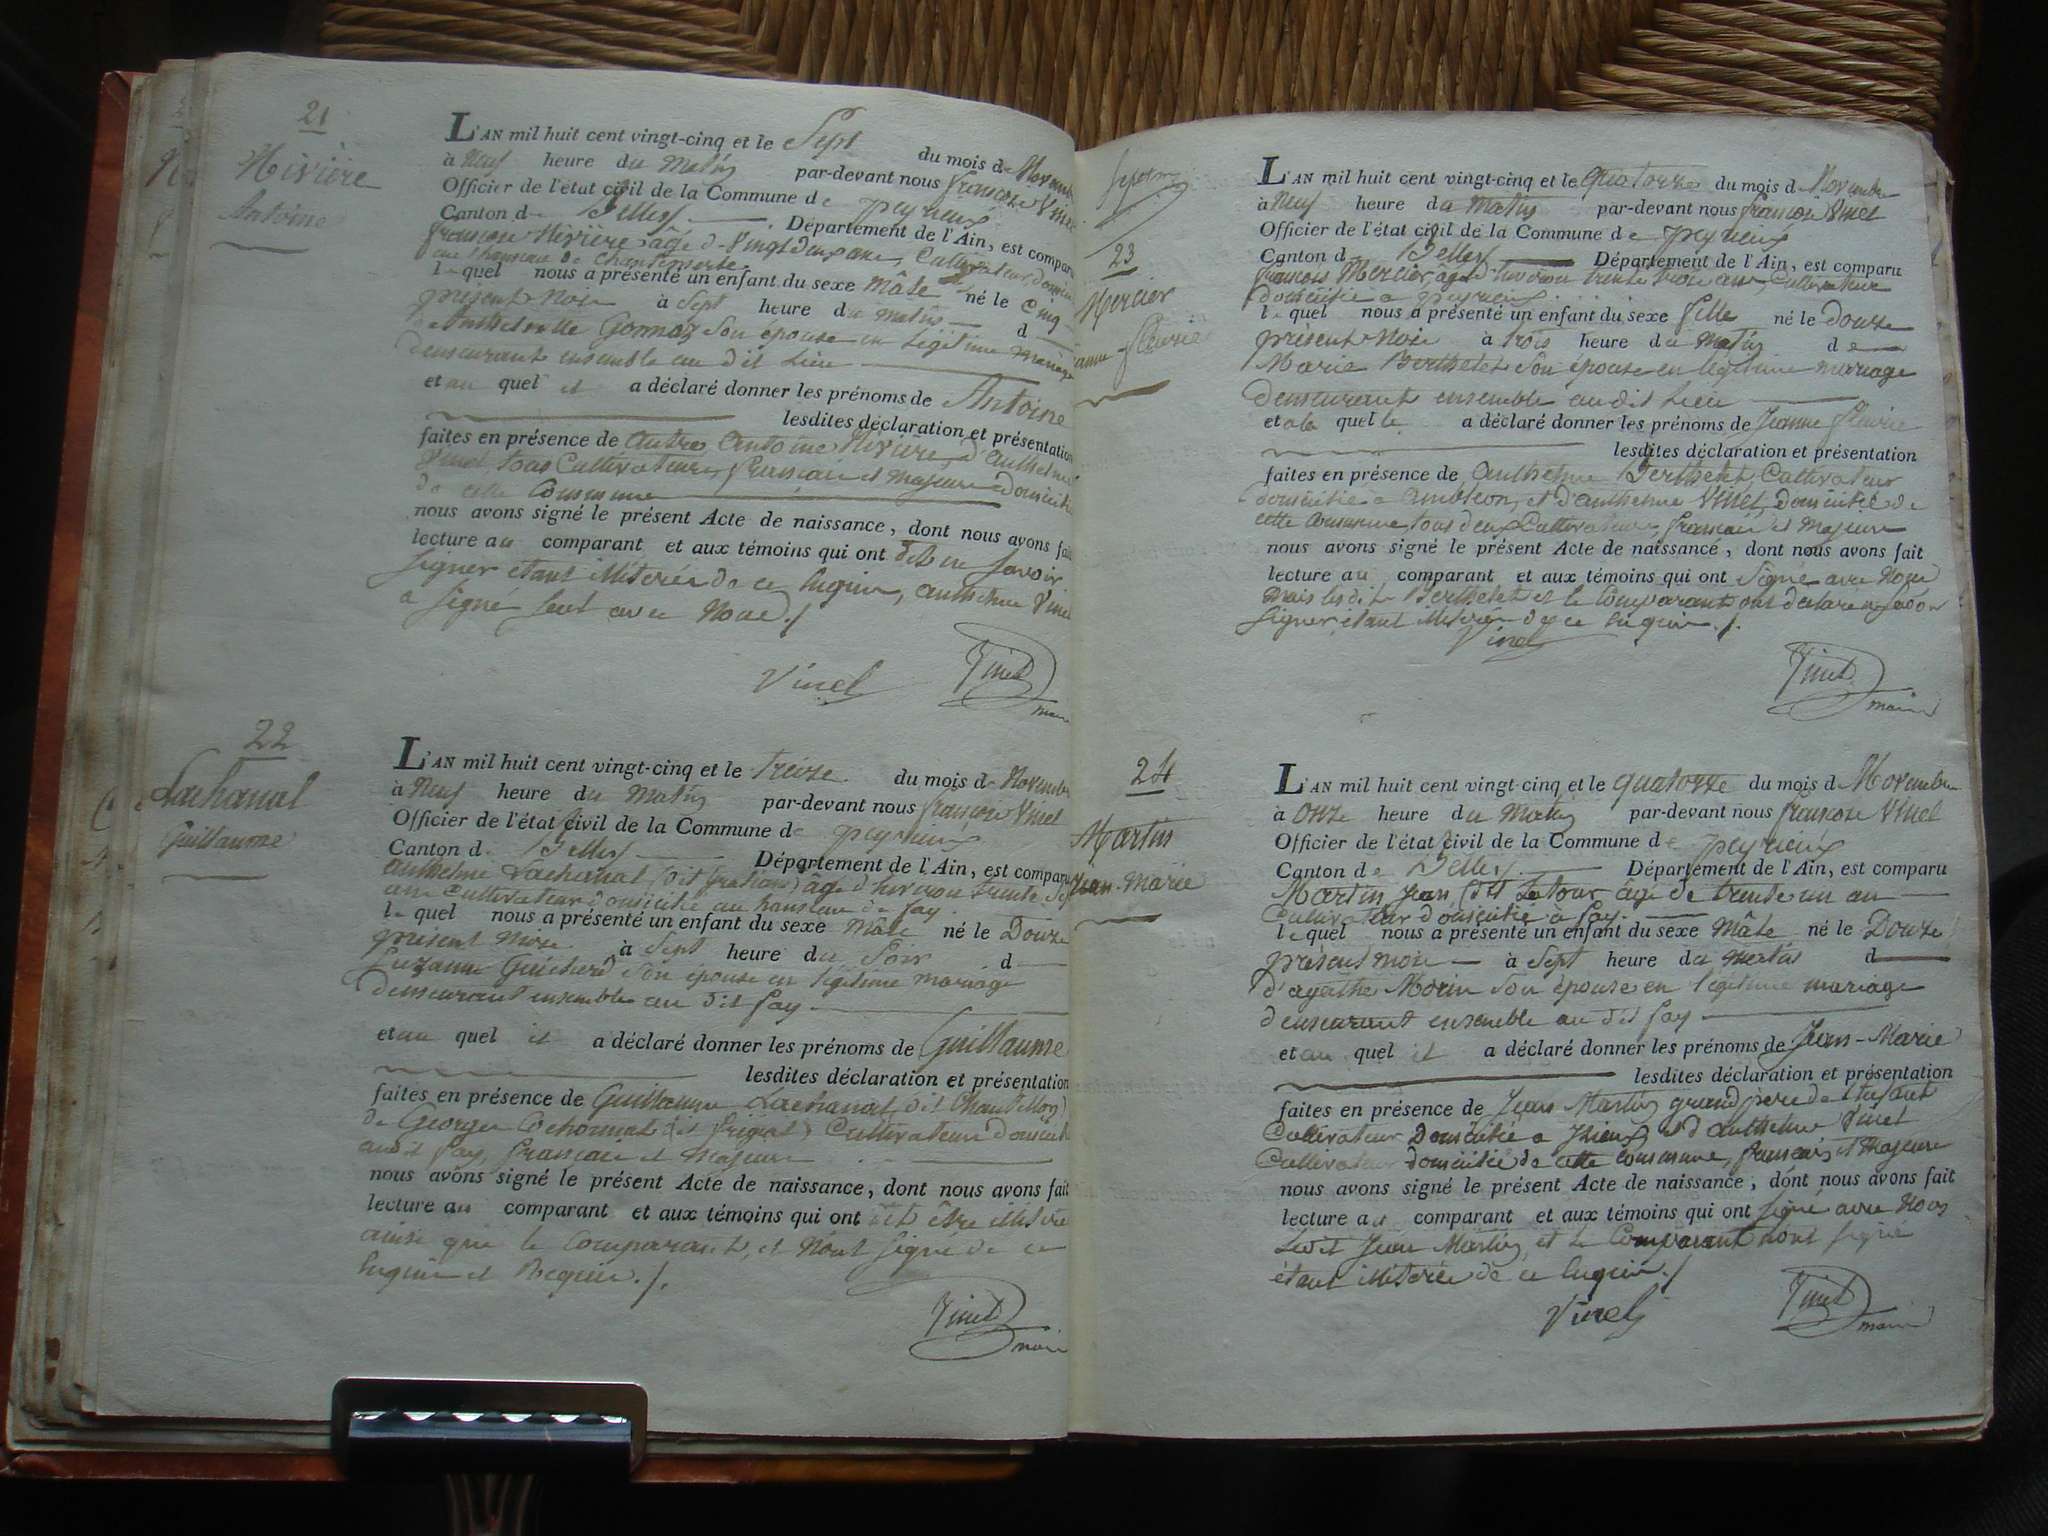 21
Rivière
Antoine
L'AN mil huit cent vingt-cinq et le Sept du mois de Novembre
à Neuf heure du Matin par-devant nous françois Vinet
Officier de l'état civil de la Commune de peyrieux
Canton de Belley Département de l'Ain, est comparu
françois Rivière âgé de Vingt deux ans, Cultivateur
au hameau de Chantemerle
lequel nous a présenté un enfant du sexe Mâle né le Cinq
présent Mois à Sept heure du matin d
Gonnaz son épouse en légitime mariage
demeurant ensemble au dit Lieu
et au quel il a déclaré donner les prénoms de Antoine
lesdites déclaration et présentation
faites en présence de autre Antoine Rivière, d'anthelme
Vinet, tous Cultivateurs, français et majeurs domiciliés
de cette Commune
nous avons signé le présent Acte de naissance, dont nous avons fait
lecture au comparant et aux témoins qui ont dit ne savoir
signer étant illiterés de ce enquis, anthelme Vinet
a signé seul avec Nous ./
Vinet Vinet
maire
22
Lachanal
Guillaume
L'AN mil huit cent vingt-cinq et le treize du mois de Novembre
à Neuf heure du Matin par-devant nous françois Vinet
Officier de l'état civil de la Commune de peyrieux
Canton de Belley Département de l'Ain, est comparu
anthelme Lachanal (dit) âgé d'environ trente
ans Cultivateur domicilié au hameau de fay
lequel nous a présenté un enfant du sexe Mâle né le Douze
présent Mois à Sept heure du Soir d
Suzanne Guicherd son épouse en légitime mariage
demeurant ensemble au dit fay
et au quel il a déclaré donner les prénoms de Guillaume
lesdites déclaration et présentation
faites en présence de Guillaume Lachanal, dit
de George Cultivateurs domiciliés
audit fay, français et majeurs
nous avons signé le présent Acte de naissance, dont nous avons fait
lecture au comparant et aux témoins qui ont dit être illiterés
ainsi que le Comparant, et N'ont signé de ce
enquis et Requis ./.
Vinet
maire
23
Mercier
Jeanne fleurie
L'AN mil huit cent vingt-cinq et le Quatorze du mois de Novembre
à Neuf heure du Matin par-devant nous françois Vinet
Officier de l'état civil de la Commune de peyrieux
Canton de Belley Département de l'Ain, est comparu
françois Mercier, âgé d'environ trente trois ans Cultivateur
domicilié a peyrieux
lequel nous a présenté un enfant du sexe fille né le Douze
présent Mois à trois heure du Matin de
Marie Berthelet son épouse en légitime mariage
demeurant ensemble au dit Lieu
et a la quelle a déclaré donner les prénoms de Jeanne fleurie
lesdites déclaration et présentation
faites en présence de anthelme Berthelet, Cultivateur
domicilié a ambléon, et d'anthelme Vinet, domicilié de
cette Commune, tous deux Cultivateurs, français et majeurs
nous avons signé le présent Acte de naissance, dont nous avons fait
lecture au comparant et aux témoins qui ont Signé avec Nous
Mais ledit Berthelet et le Comparant ont déclaré ne savoir
signer étant illiterés de ce enquis ./.
Vinet
Vinet
maire
24
Martin
Jean-Marie
L'AN mil huit cent vingt-cinq et le quatorze du mois de Novembre
à Onze heure du Matin par-devant nous françois Vinet
Officier de l'état civil de la Commune de peyrieux
Canton de Belley Département de l'Ain, est comparu
Martin Jean (dit Latour, âgé de trente un an
Cultivateur domicilié à fay.
lequel nous a présenté un enfant du sexe Mâle né le Douze
présent mois à Sept heure du matin d
d'agathe Morin son épouse en légitime mariage
demeurant ensemble au dit fay
et au quel il a déclaré donner les prénoms de Jean-Marie
lesdites déclaration et présentation
faites en présence de Jean Martin grand père de l'enfant
Cultivateur Domicilié a et d'anthelme Vinet
Cultivateur domicilié de cette Commune, français et Majeurs
nous avons signé le présent Acte de naissance, dont nous avons fait
lecture au comparant et aux témoins qui ont signé avec Nous
Ledit Jean Martin, et le Comparant n'ont signé
étant illiterés de ce enquis ./
Vinet Vinet
maire